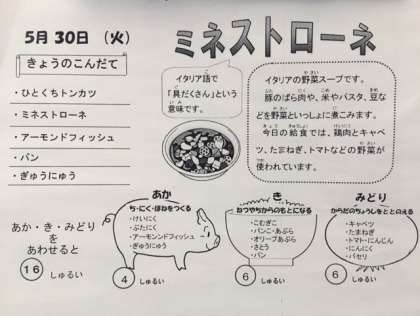 5月30日（火）
ミネストローネ
きょうのこんだて
・ひとくちトンカツ
・ミネストローネ
・アーモンドフィッシュ
・パン
・ぎゅうにゅう
イタリア語で
「具だくさん」という
意味です。
イタリアの野菜スープです。
豚のばら肉や、米やパスタ、豆な
どを野菜といっしょに煮こみます。
今日の給食では、鶏肉とキャベ
ツ、たまねぎ、トマトなどの野菜が
使われています。
あか・き・みどり
を
あわせると
16 しゅるい
あか
ち・にく・ほねをつくる
・けいにく
・ぶたにく
・アーモンドフィッシュ
・ぎゅうにゅう
4 しゅるい
き
ねつやちからのもとになる
・こむぎこ
・パンこ・あぶら
・オリーブあぶら
・さとう
・パン
6 しゅるい
みどり
からだのちょうしをととのえる
・キャベツ
・たまねぎ
・トマト・にんじん
・にんにく
・パセリ
6 しゅるい